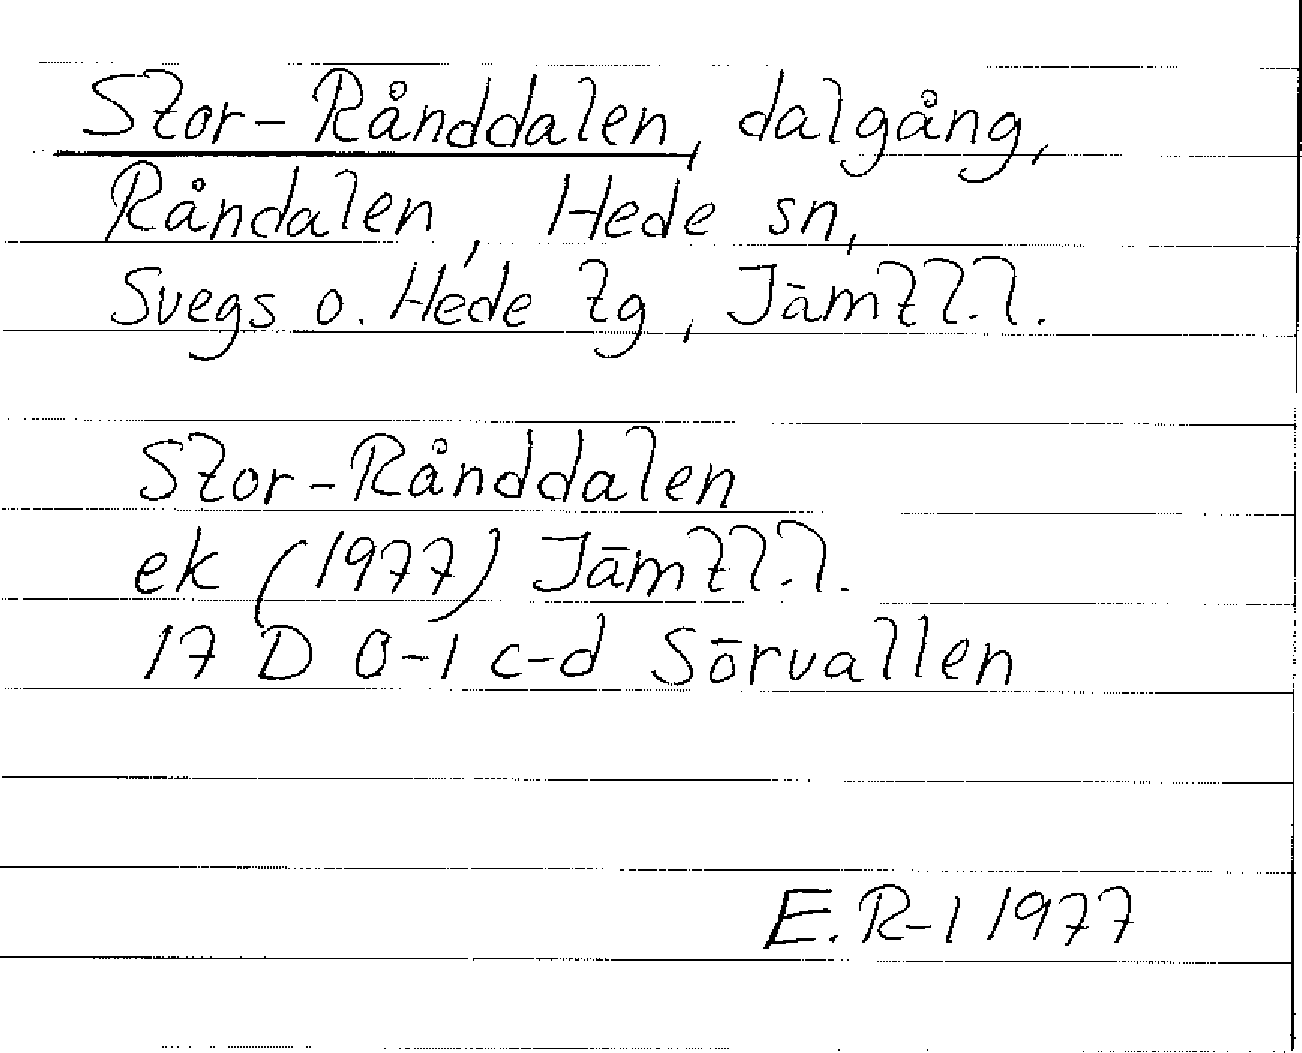 Stor-Rånddalen, dalgång,
Råndalen, Hede sn,
Svegs o. Hede tg, Jämtl.l.
Stor-Rånddalen
ek (1977) Jämtl.l.
17 D 0-1 c-d Sörvallen
E. R-l 1977